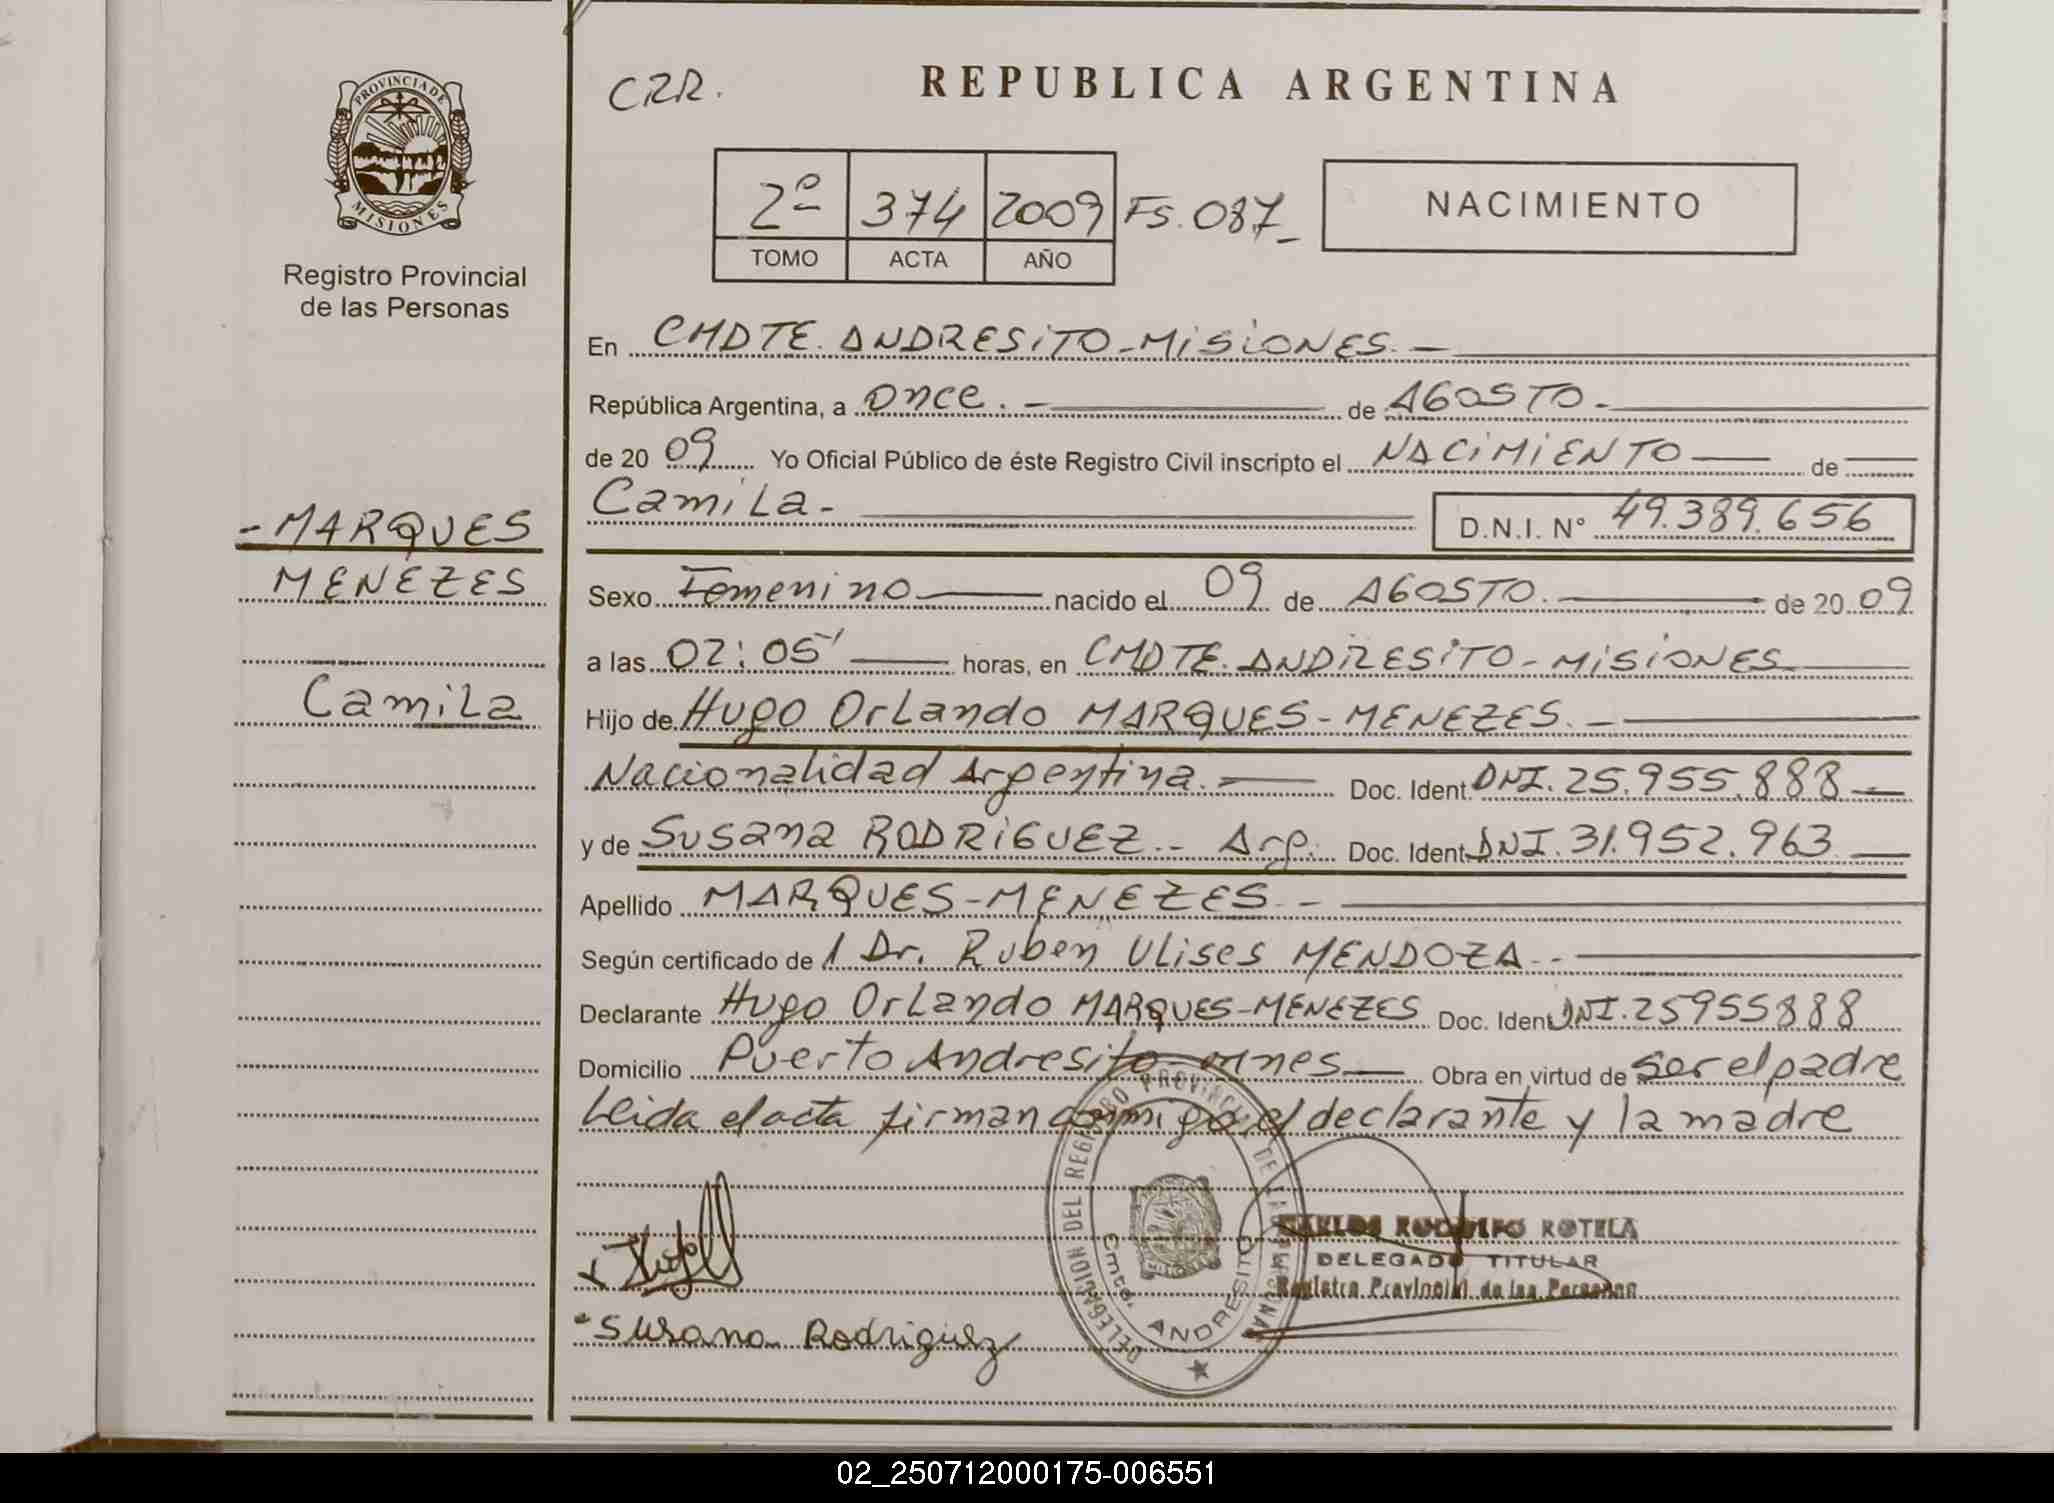 PROVINCIA DE
MISIONES
Registro Provincial
de las Personas
- MARQUES
MENEZES
Camila
CRR.
REPUBLICA ARGENTINA
2º 374 2009 Fs. 087_
TOMO ACTA AÑO
NACIMIENTO
En CMDTE. ANDRESITO - MISIONES. -
República Argentina, a once. - de AGOSTO -
de 20 09 Yo Oficial Público de éste Registro Civil inscripto el NACIMIENTO de
Camila - D.N.I. Nº 49.389.656
Sexo Femenino nacido el 09 de AGOSTO. de 20 09
a las 02:05' horas, en CMDTE. ANDRESITO - MISIONES
Hijo de Hugo Orlando MARQUES - MENEZES. -
Nacionalidad Argentina. - Doc. Ident. DNI. 25.955.888 -
y de Susana RODRIGUEZ. - Arg. Doc. Ident DNI. 31.952.963 -
Apellido MARQUES - MENEZES - -
Según certificado de l Dr. Ruben Ulises MENDOZA - -
Declarante Hugo Orlando MARQUES - MENEZES Doc. Ident DNI. 25955888
Domicilio Puerto Andresito - mnes - Obra en virtud de ser el padre
Leida el acta firman conmigo, el declarante y la madre
DELEGACION DEL REGISTRO PROVINCIAL DE LAS PERSONAS
Cmte. ANDRESITO
CARLOS RODOLFO ROTELA
DELEGADO TITULAR
Registro Provincial de las Personas
Susana Rodriguez
02_250712000175-006551